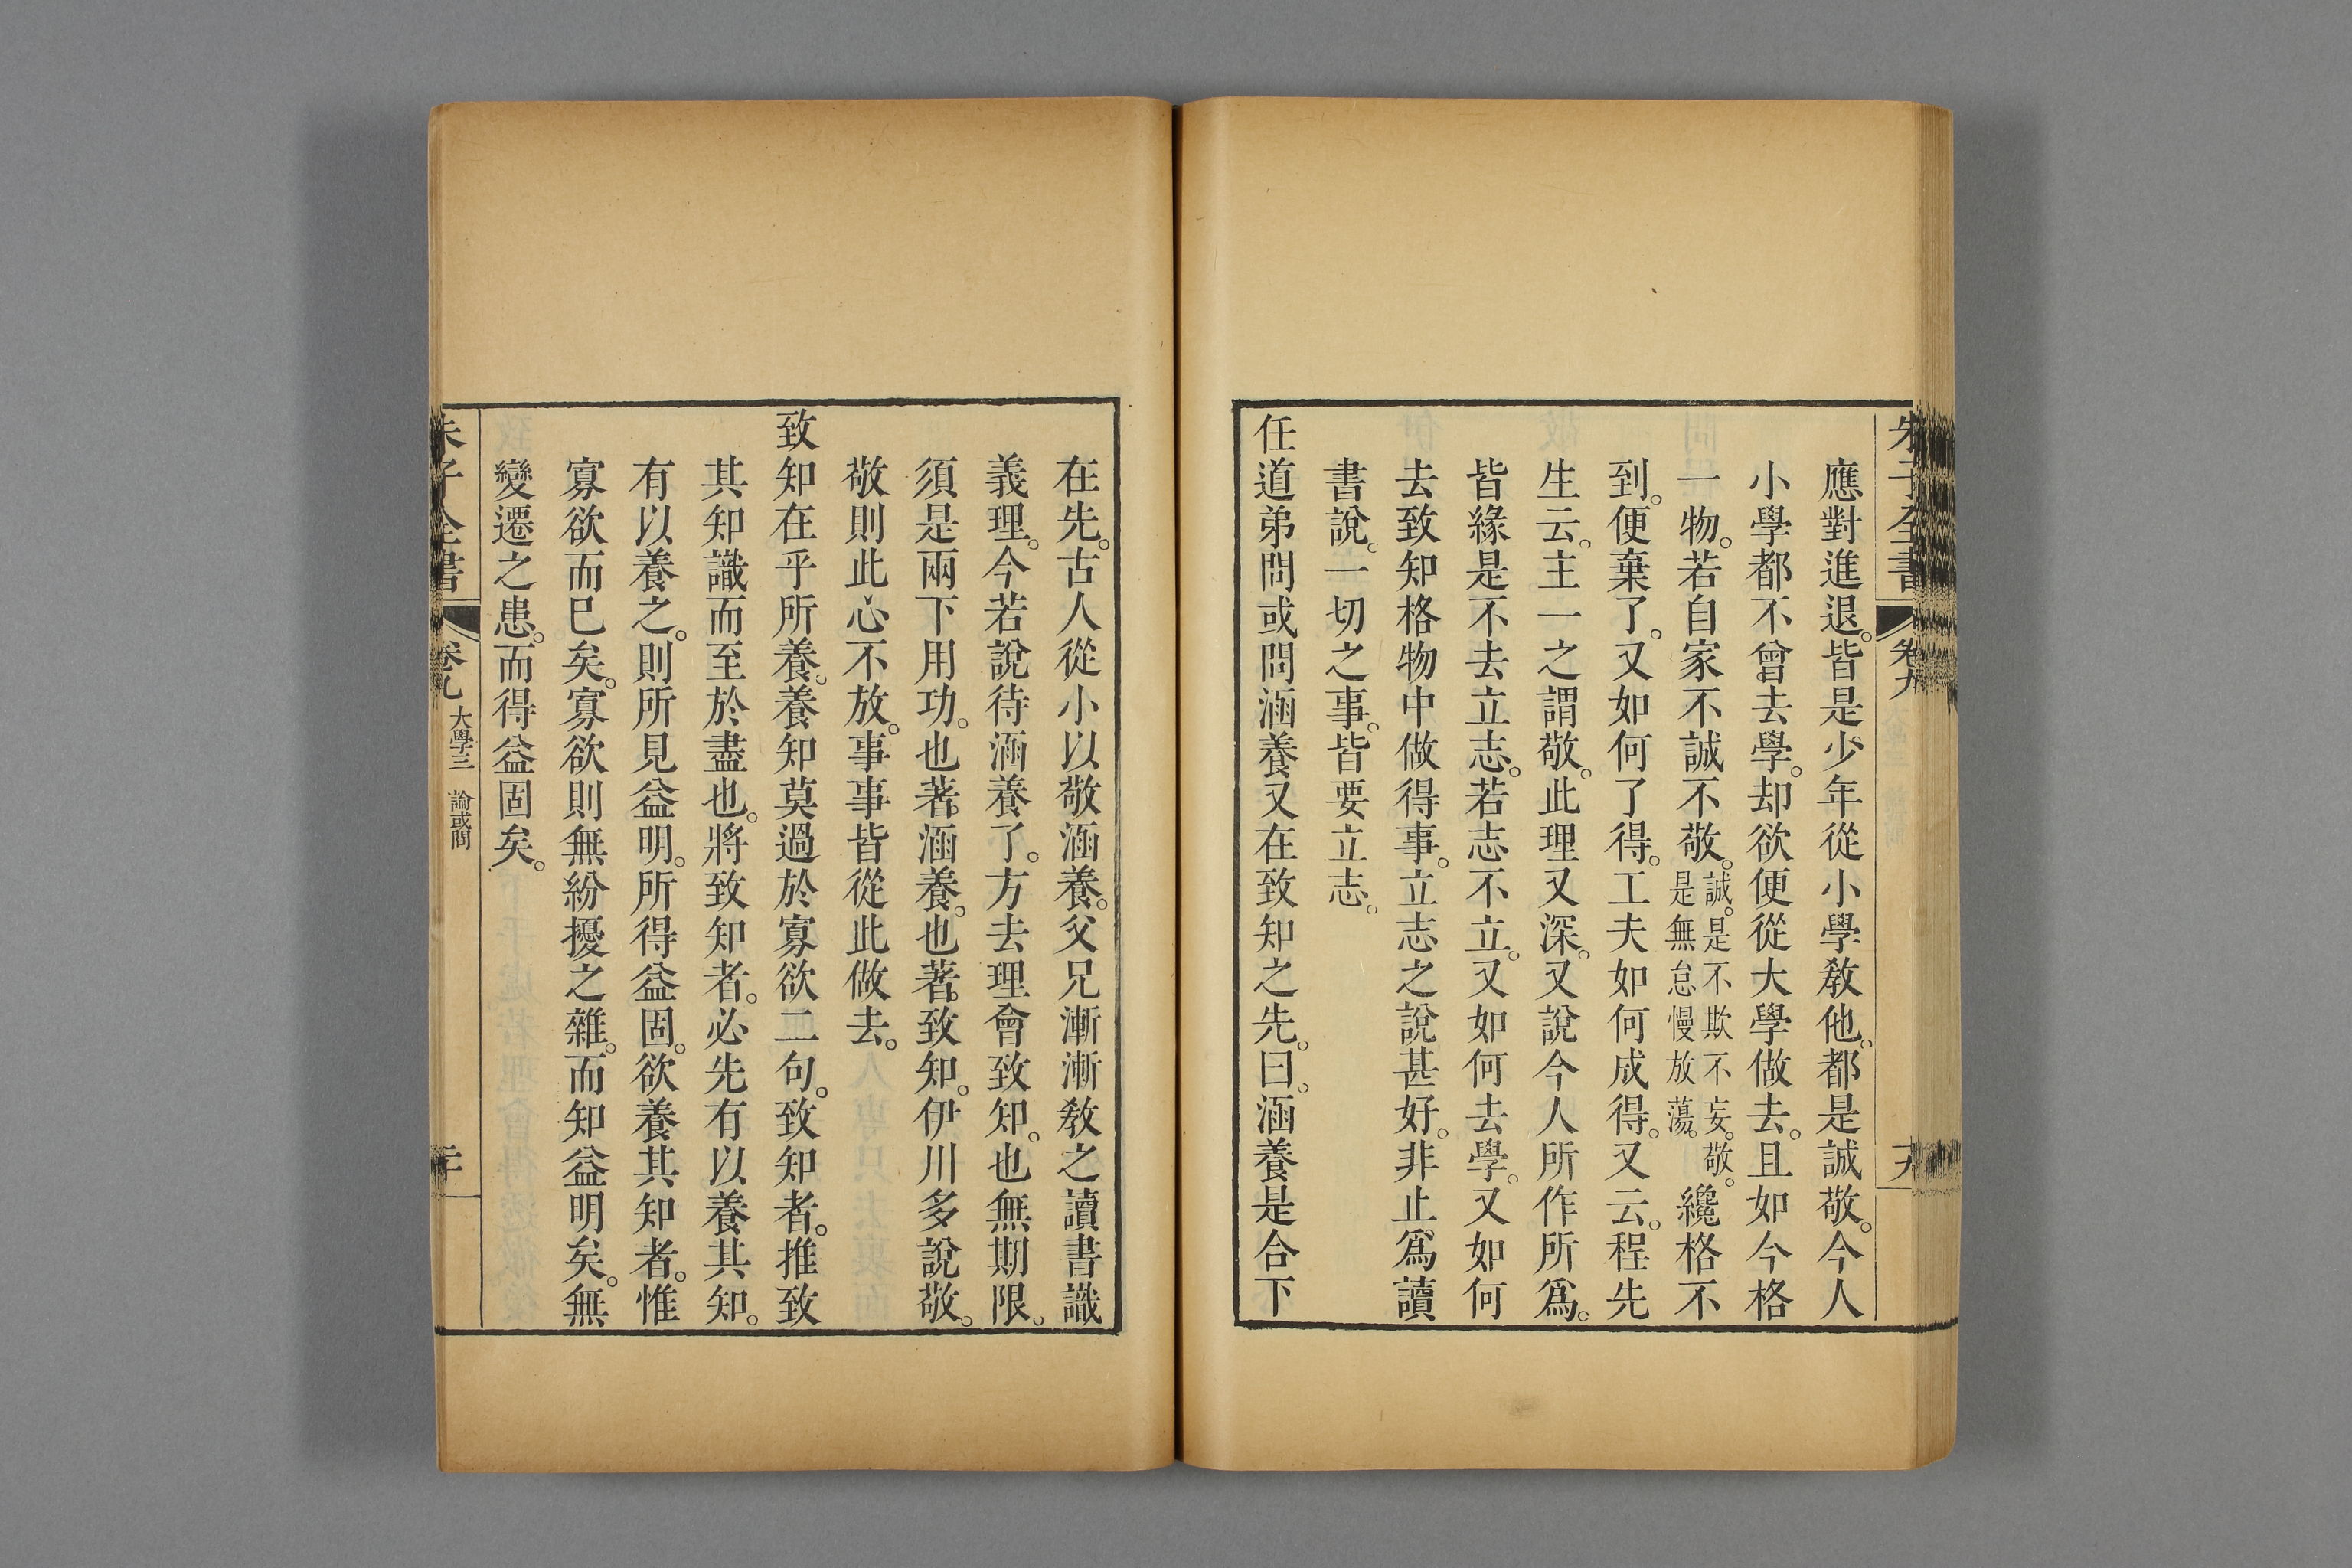 朱子全書 卷九
應對進退。皆是少年從小學教他。都是誠敬。今人
小學都不曾去學。却欲便從大學做去。且如今格
一物。若自家不誠不敬。誠。是不欺不妄。敬。是無怠慢放蕩。纔格不
到。便棄了。又如何了得。工夫如何成得。又云。程先
生云。主一之謂敬。此理又深。又說今人所作所爲。
皆緣是不去立志。若志不立。又如何去學。又如何
去致知格物中做得事。立志之說甚好。非止爲讀
書說。一切之事。皆要立志。
任道弟問或問涵養又在致知之先。曰。涵養是合下
在先。古人從小以敬涵養。父兄漸漸教之讀書識
義理。今若說待涵養了。方去理會致知。也無期限。
須是兩下用功。也著涵養。也著致知。伊川多說敬。
敬則此心不放。事事皆從此做去。
致知在乎所養。養知莫過於寡欲二句。致知者。推致
其知識而至於盡也。將致知者。必先有以養其知。
有以養之。則所見益明。所得益固。欲養其知者。惟
寡欲而巳矣。寡欲則無紛擾之雜。而知益明矣。無
變遷之患。而得益固矣。
朱子全書 卷九 大學三 論或問